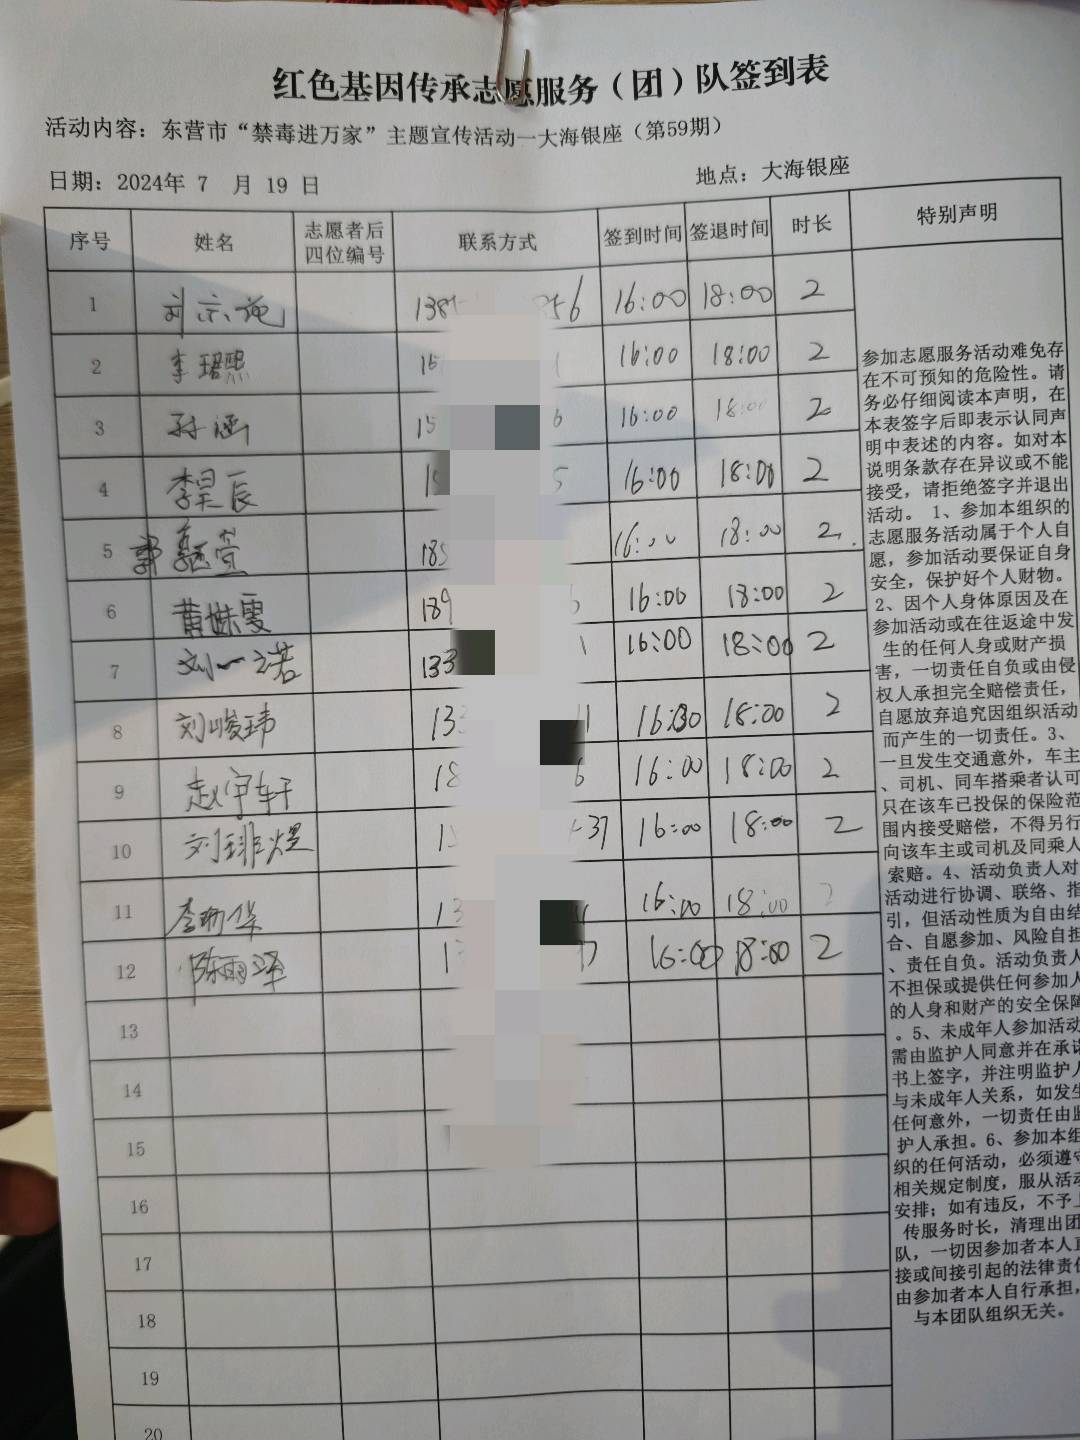 红色基因传承志愿服务（团）队签到表
活动内容：东营市“禁毒进万家”主题宣传活动—大海银座（第59期）
日期：2024年 7 月 19 日
地点：大海银座
序号 姓名 志愿者后四位编号 联系方式 签到时间 签退时间 时长 特别声明
1 刘宗 138 56 16:00 18:00 2
2 李珺熙 15 16:00 18:00 2
3 孙涵 15 6 16:00 18:00 2
4 李昊辰 5 16:00 18:00 2
5 郭 萱 185 16:00 18:00 2.
6 黄姝雯 189 16:00 18:00 2
7 刘一诺 133 1 16:00 18:00 2
8 刘峻玮 13 16:30 18:00 2
9 赵宇轩 18 6 16:00 18:00 2
10 刘琲煜 37 16:00 18:00 2
11 李 华 13 16:00 18:00 2
12 陈雨泽 16:00 18:00 2
13
14
15
16
17
18
19
20
参加志愿服务活动难免存
在不可预知的危险性。请
务必仔细阅读本声明，在
本表签字后即表示认同声
明中表述的内容。如对本
说明条款存在异议或不能
接受，请拒绝签字并退出
活动。 1、参加本组织的
志愿服务活动属于个人自
愿，参加活动要保证自身
安全，保护好个人财物。
2、因个人身体原因及在
参加活动或在往返途中发
生的任何人身或财产损
害，一切责任自负或由侵
权人承担完全赔偿责任，
自愿放弃追究因组织活动
而产生的一切责任。3、
一旦发生交通意外，车主
、司机、同车搭乘者认可
只在该车已投保的保险范
围内接受赔偿，不得另行
向该车主或司机及同乘人
索赔。4、活动负责人对
活动进行协调、联络、指
引，但活动性质为自由结
合、自愿参加、风险自担
、责任自负。活动负责人
不担保或提供任何参加人
的人身和财产的安全保障
。5、未成年人参加活动
需由监护人同意并在承诺
书上签字，并注明监护人
与未成年人关系，如发生
任何意外，一切责任由监
护人承担。6、参加本组
织的任何活动，必须遵守
相关规定制度，服从活动
安排；如有违反，不予上
传服务时长，清理出团
队，一切因参加者本人直
接或间接引起的法律责任
由参加者本人自行承担，
与本团队组织无关。